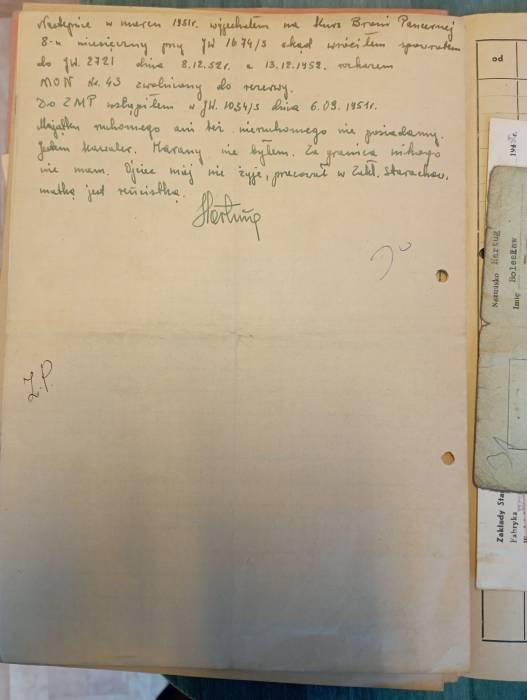 Następnie w marcu 1951r. wyjechałem na Kurs Broni Pancernej
8-u miesięczny przy JW 1674/s skąd wróciłem spowrotem
do JW. 2721 dnia 8.12.52r. a 13.12.1952. rozkazem
MON Nr. 43 zwolniony do rezerwy.
Do ZMP wstąpiłem w JW. 1034/s dnia 6.09.1951r.
Majątku ruchomego ani też nieruchomego nie posiadamy.
Jestem kawaler. Karany nie byłem. Za granicą nikogo
nie mam. Ojciec mój nie żyje, pracował w Zakł. Starachow.
matką jest rencistką.
Hartung
Z.P.
od
194
Nazwisko Hartug
Imię Bolesław
31
Zakłady Sta
Fabryka